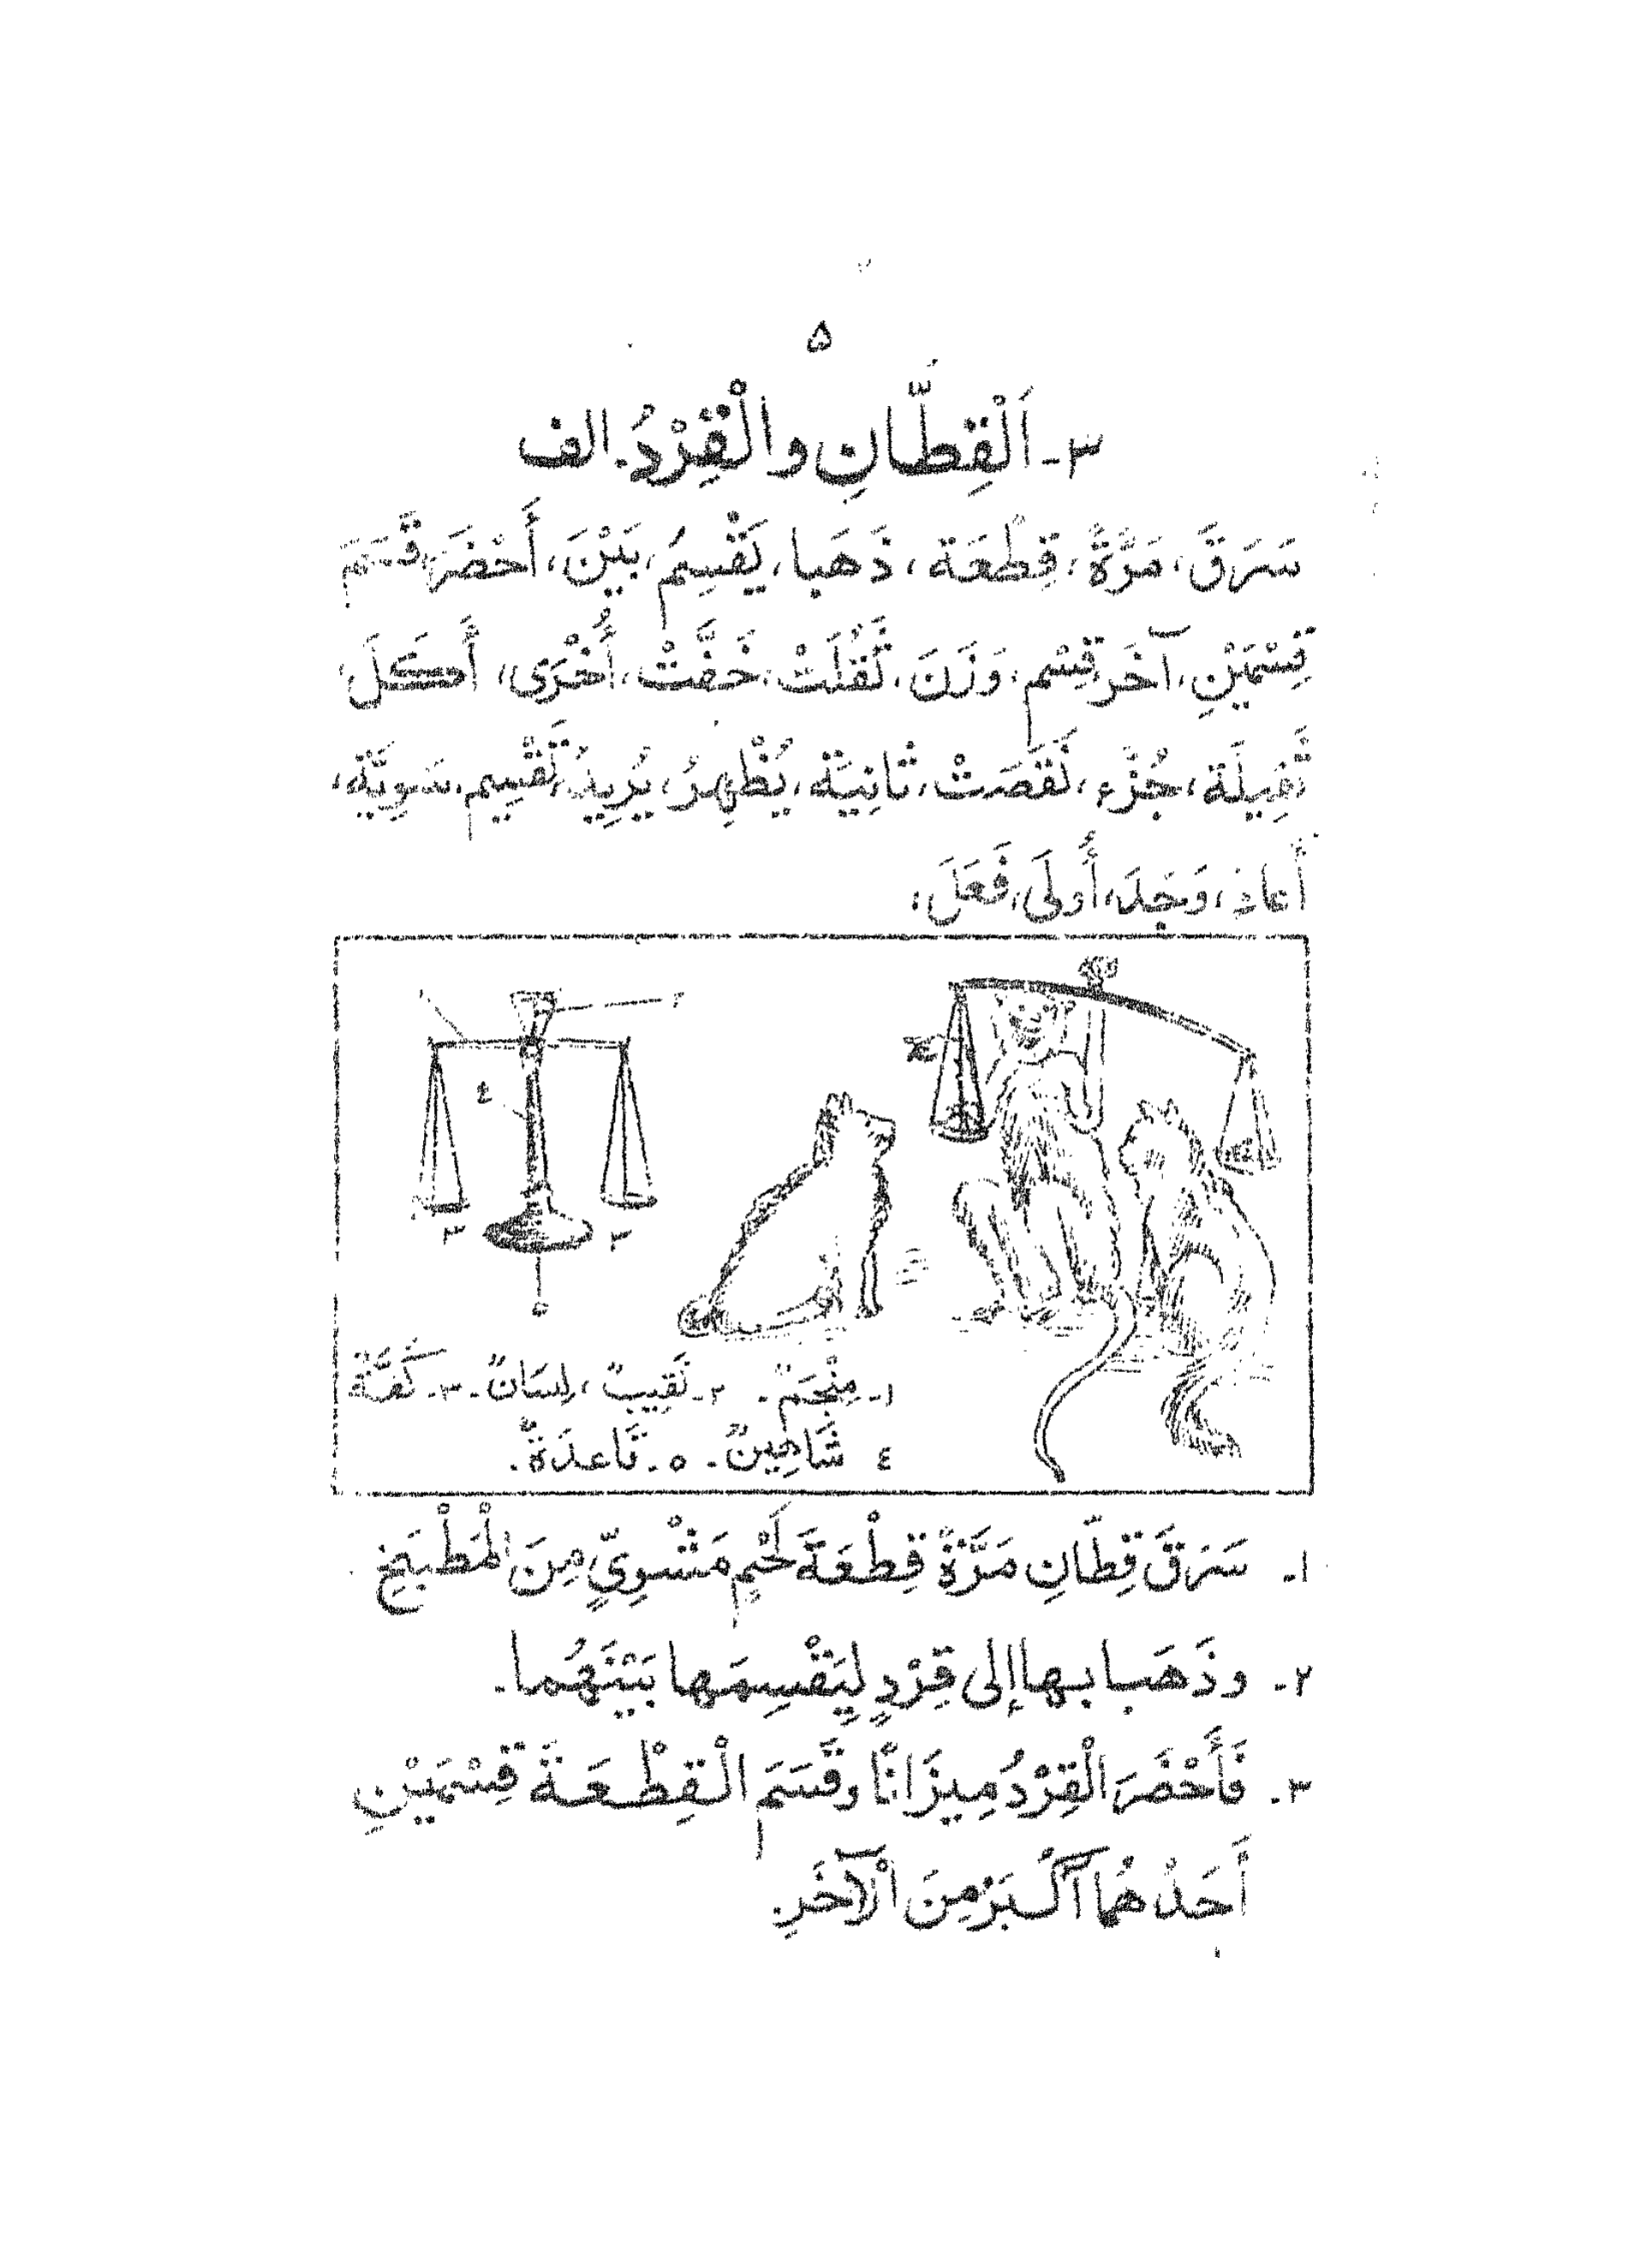 ۵
٣- اَلْقِطَّانِ والْقِرْدُ. الف
سَرَقَ، مَرَّةً، قِطْعَة، ذَهَبا، يَقْسِمُ، بَيْنَ، أَحْضَرَ، قَسَمَ
قِسْمَيْنِ، آخَر، قِسْم، وَزَنَ، ثَقُلَتْ، خَفَّتْ، أُخْرَى، أَكَلَ،
ثَقِيلَة، جُزْء، نَقَصَتْ، ثانِيَة، يُظْهِرُ، يُرِيدُ، تَقْسِيم، سَوِيَّة،
أَعادَ، وَجَدَ، أُولَى، فَعَلَ،
١- مِنْجَمٌ. ٢- نَقِيبٌ، لِسَانٌ. ٣- كَفَّةٌ
٤ شَاهِينٌ. ٥. قَاعدَةٌ.
١. سَرَقَ قِطّانِ مَرَّةً قِطْعَةَ لَحْمٍ مَشْوِيٍّ مِنَ الْمَطْبَخِ
٢. وذَهَبا بها إلى قِرْدٍ لِيَقْسِمَها بَيْنَهُما.
٣. فَأَحْضَرَ الْقِرْدُ مِيزَانًا وقَسَمَ الْقِطْعَةَ قِسْمَيْنِ
أَحَدُهُما أَكْبَرُ مِنَ الْآخَرِ.